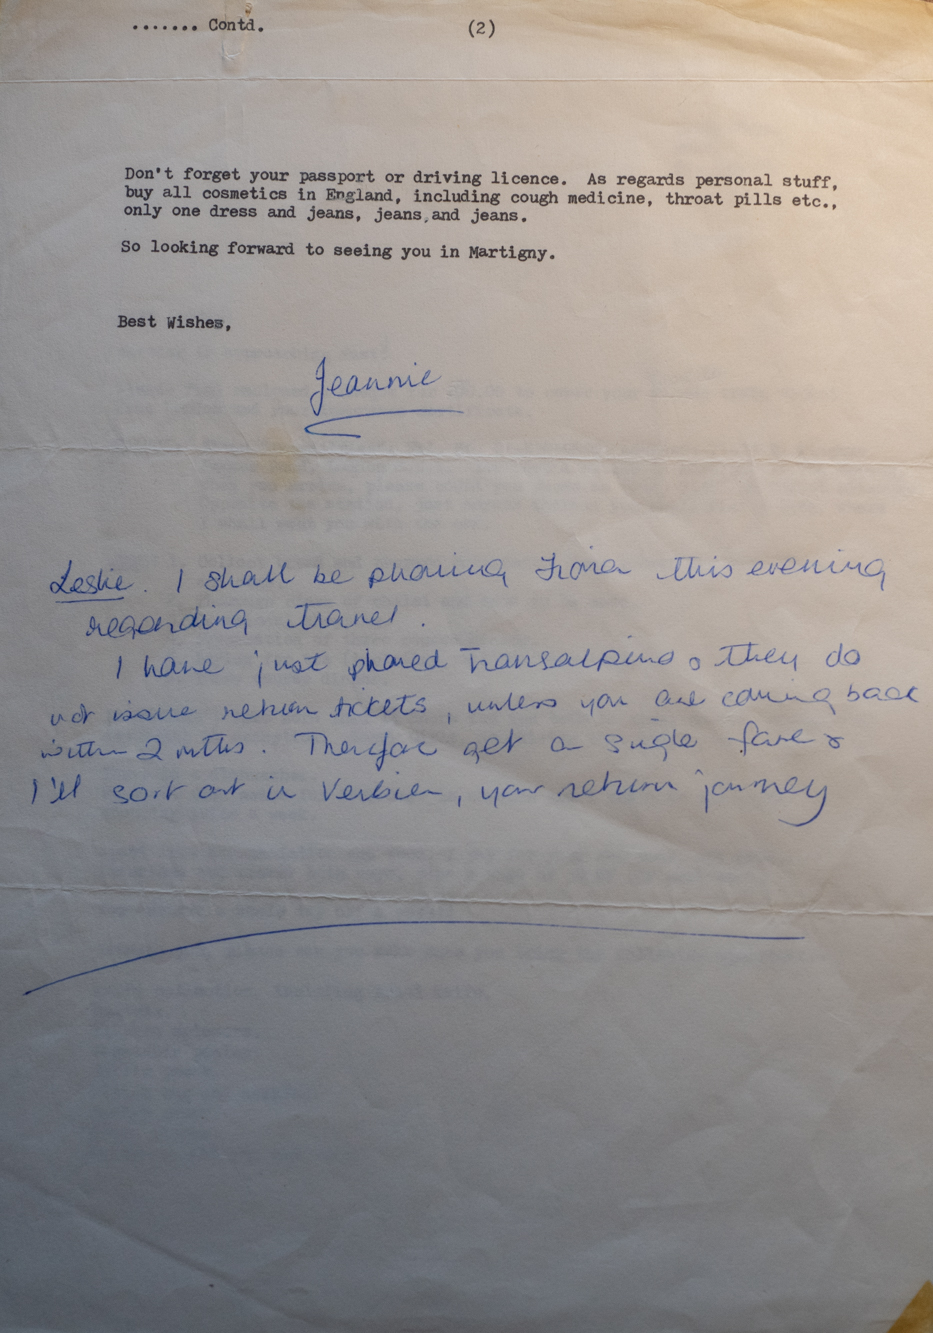 ....... Contd.
(2)
Don't forget your passport or driving licence. As regards personal stuff,
buy all cosmetics in England, including cough medicine, throat pills etc.,
only one dress and jeans, jeans,and jeans.
So looking forward to seeing you in Martigny.
Best Wishes,
Jeannie
Leslie. I shall be phoning Fiona this evening
regarding travel.
I have just phoned Transalpino & they do
not issue return tickets, unless you are coming back
within 2 mths. Therefore get a single fare &
I'll sort out in Verbier, your return journey